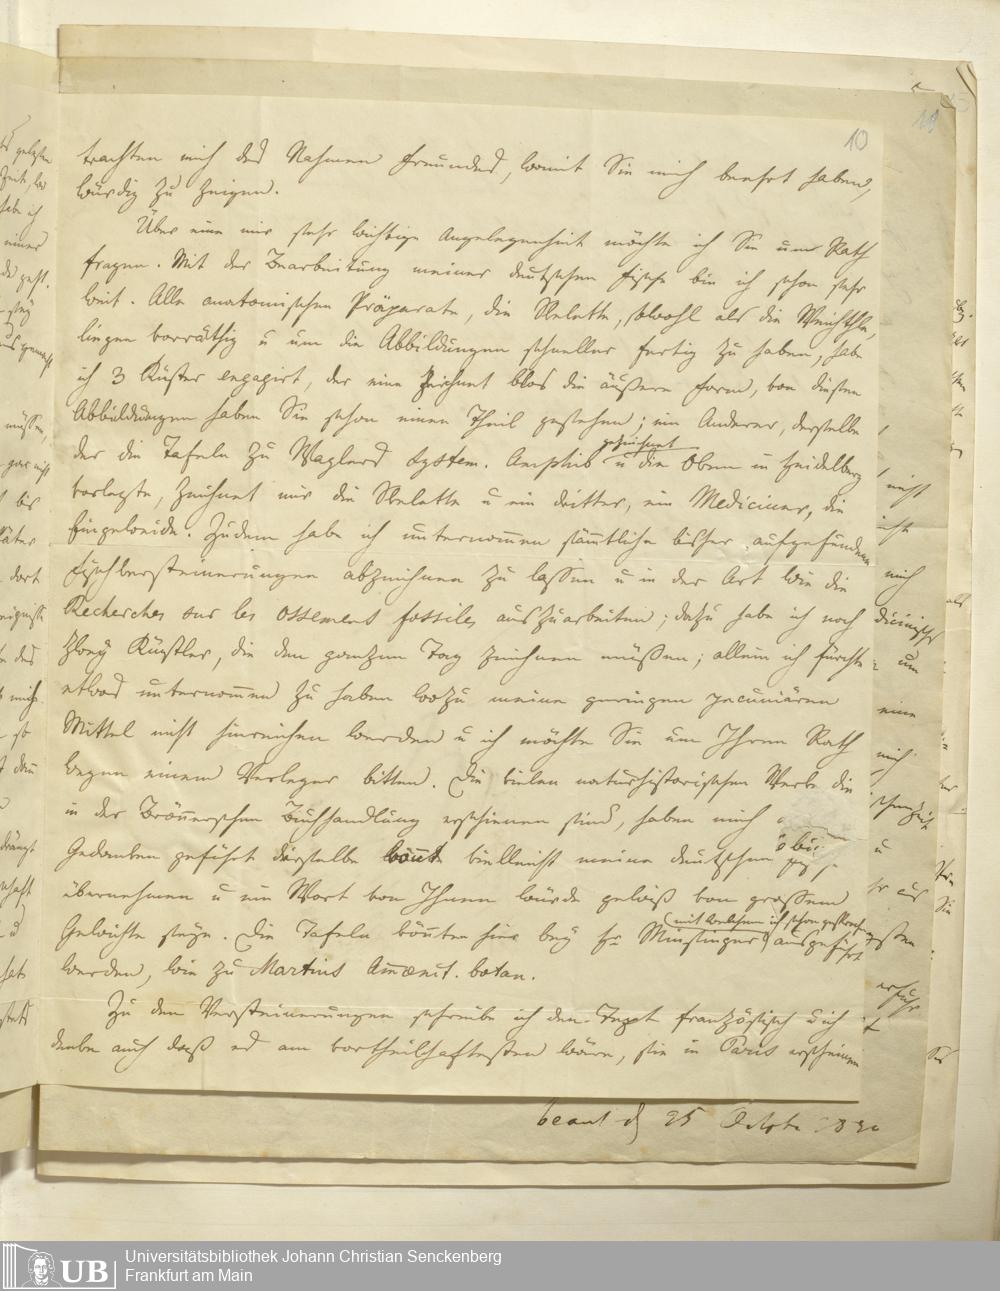 10
trachten mich des Nahmen Freundes, womit Sie mich beehrt haben,
würdig zu zeigen.
Über eine mir sehr wichtige Angelegenheit möchte ich Sie um Rath
fragen. Mit der Bearbeitung meiner deutschen Fische bin ich schon sehr
weit. Alle anatomischen Präparate, die Skelette, sowohl als die Weichthle,
liegen vorräthig u um die Abbildungen schneller fertig zu haben, habe
ich 3 Künstler engagirt, der eine zeichnet blos die äußere Form, von diesen
Abbildungen haben Sie schon einen Theil gesehen; ein Anderer, derselbe
der die Tafeln zu Waglers System. Amphib gezeichnet u die Oken in Heidelberg
vorlegte, zeichnet mir die Skelette u ein dritter, ein Mediciner, die
Eingeweide. Zudem habe ich unternommen sämmtliche bisher aufgefundenen
Fischversteinerungen abzeichnen zu lassen u in der Art wie die
Recherches sur les ossemens fossiles auszuarbeiten; dazu habe ich noch
zwey Künstler, die den ganzen Tag zeichnen müßen; allein ich fürchte
etwas unternommen zu haben wozu meine geringen pecuniären
Mittel nicht hinreichen werden u ich möchte Sie um Ihren Rath
wegen einem Verleger bitten. Die vielen naturhistorischen Werke die
in der Brönnerschen Buchhandlung erschienen sind, haben mich
Gedanken geführt dieselbe könnte vielleicht meine deutschen
übernehmen u ein Wort von Ihnen würde gewiß von grossem
Gewichte seyn. Die Tafeln könnten hier bey Hr Minsinger (mit welchem ich schon gesprochen) ausgeführt
werden, wie zu Martius Amœnit. botan.
Zu den Versteinerungen schreibe ich den Text französisch u ich
denke auch daß es am vortheilhaftesten wäre, sie in Paris erscheinen
beant d 25 Octbr 1830
UB
Universitätsbibliothek Johann Christian Senckenberg
Frankfurt am Main